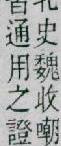 北史魏收嘲
皆通用之證